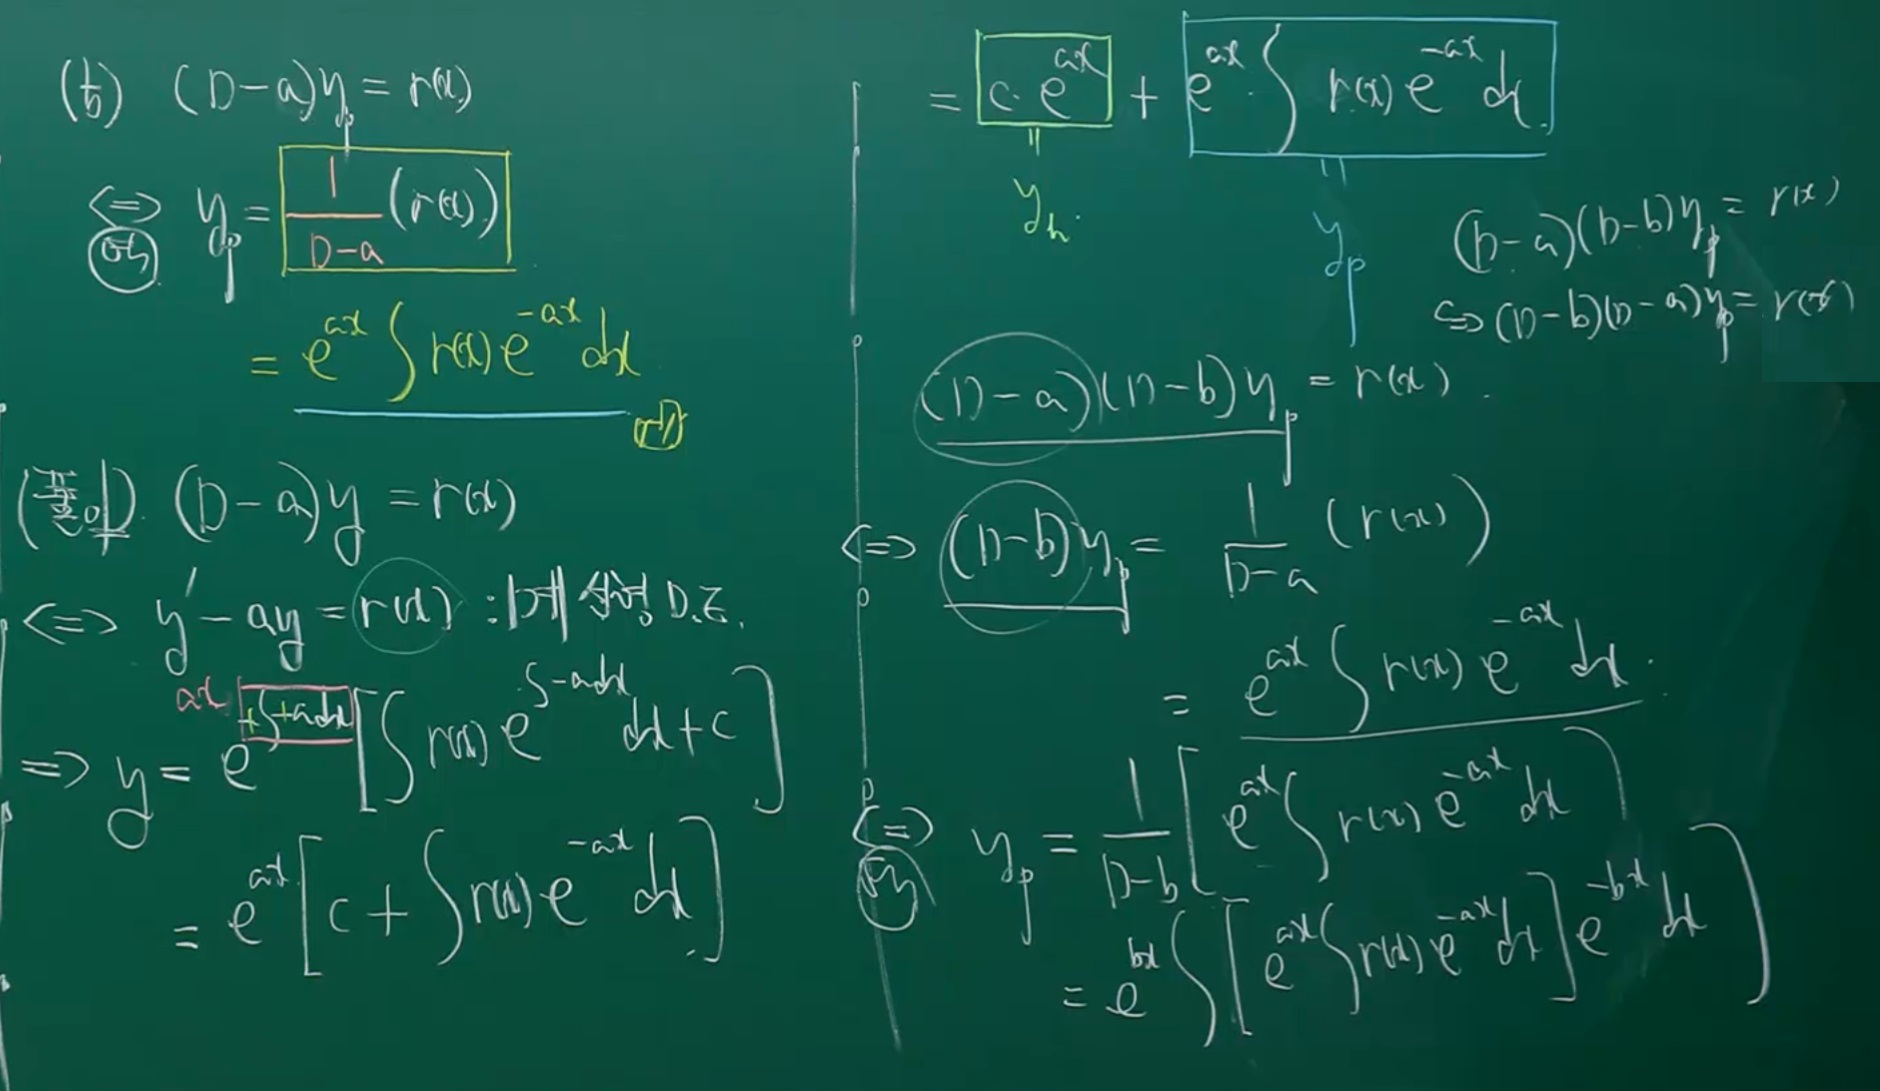 (b) (D-a)y_p = r(x)
<=> y_p = 1/(D-a) (r(x))
= e^{ax} ∫ r(x) e^{-ax} dx
(풀이) (D-a)y = r(x)
<=> y' - ay = r(x) : D.E.
=> y = e^{+∫+adx} [∫ r(x) e^{∫-adx} dx + c]
ax
= e^{ax} [c + ∫ r(x) e^{-ax} dx]
= c·e^{ax} + e^{ax}·∫ r(x) e^{-ax} dx
" "
y_h y_p
(D-a)(D-b)y_p = r(x)
<=> (D-b)(D-a)y_p = r(x)
(D-a)(D-b)y_p = r(x).
<=> (D-b)y_p = 1/(D-a) (r(x))
= e^{ax} ∫ r(x) e^{-ax} dx.
<=> y_p = 1/(D-b) [e^{ax} ∫ r(x) e^{-ax} dx]
= e^{bx} ∫ [e^{ax} ∫ r(x) e^{-ax} dx] e^{-bx} dx]